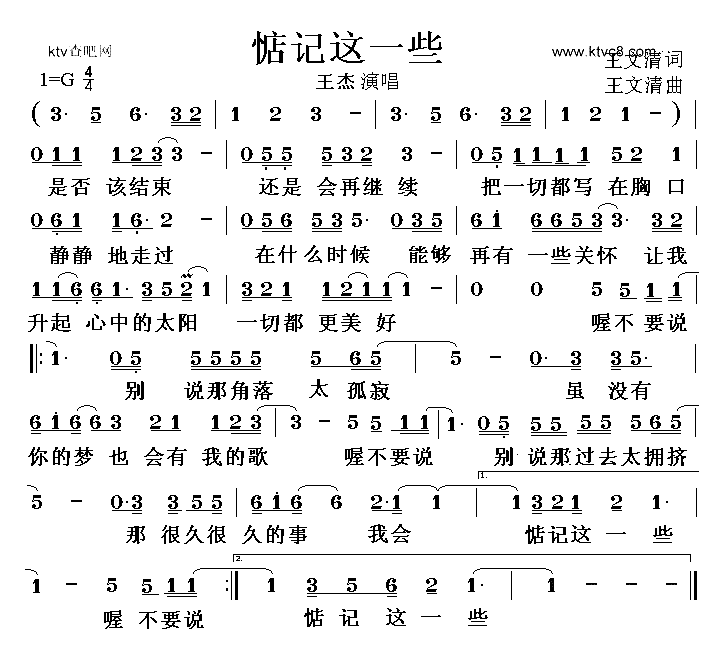 惦记这一些
ktv查吧网
www.ktvc8.com
王文清词
1=G 4/4
王杰 演唱
王文清曲
( 3· 5 6· 32 | 1 2 3 - | 3· 5 6· 32 | 1 2 1 - )
011 1233 - | 055 532 3 - | 05 1111 52 1
是否 该结束 还是 会再继续 把一切都写 在胸口
061 16·2 - | 056 5635 035 | 61 66533· 32
静静 地走过 在什么时候 能够 再有 一些关怀 让我
116 61· 3521 | 321 12111 - | 0 0 5 511
升起 心中的太阳 一切都 更美 好 喔不要说
1· 05 5555 5 65 | 5 - 0·3 35·
别 说那角落 太 孤寂 虽 没有
61663 21 123 | 3 - 5 511 | 1· 05 55 55 565
你的梦 也 会有 我的歌 喔不要说 别 说那过去太拥挤
5 - 0·3 355 | 616 6 2·1 1 | 1 321 2 1·
1.
那 很久很 久的事 我会 惦记这 一 些
2.
1 - 5 511 :| 1 3 5 6 2 1· | 1 - - -
喔 不要说 惦 记 这 一 些